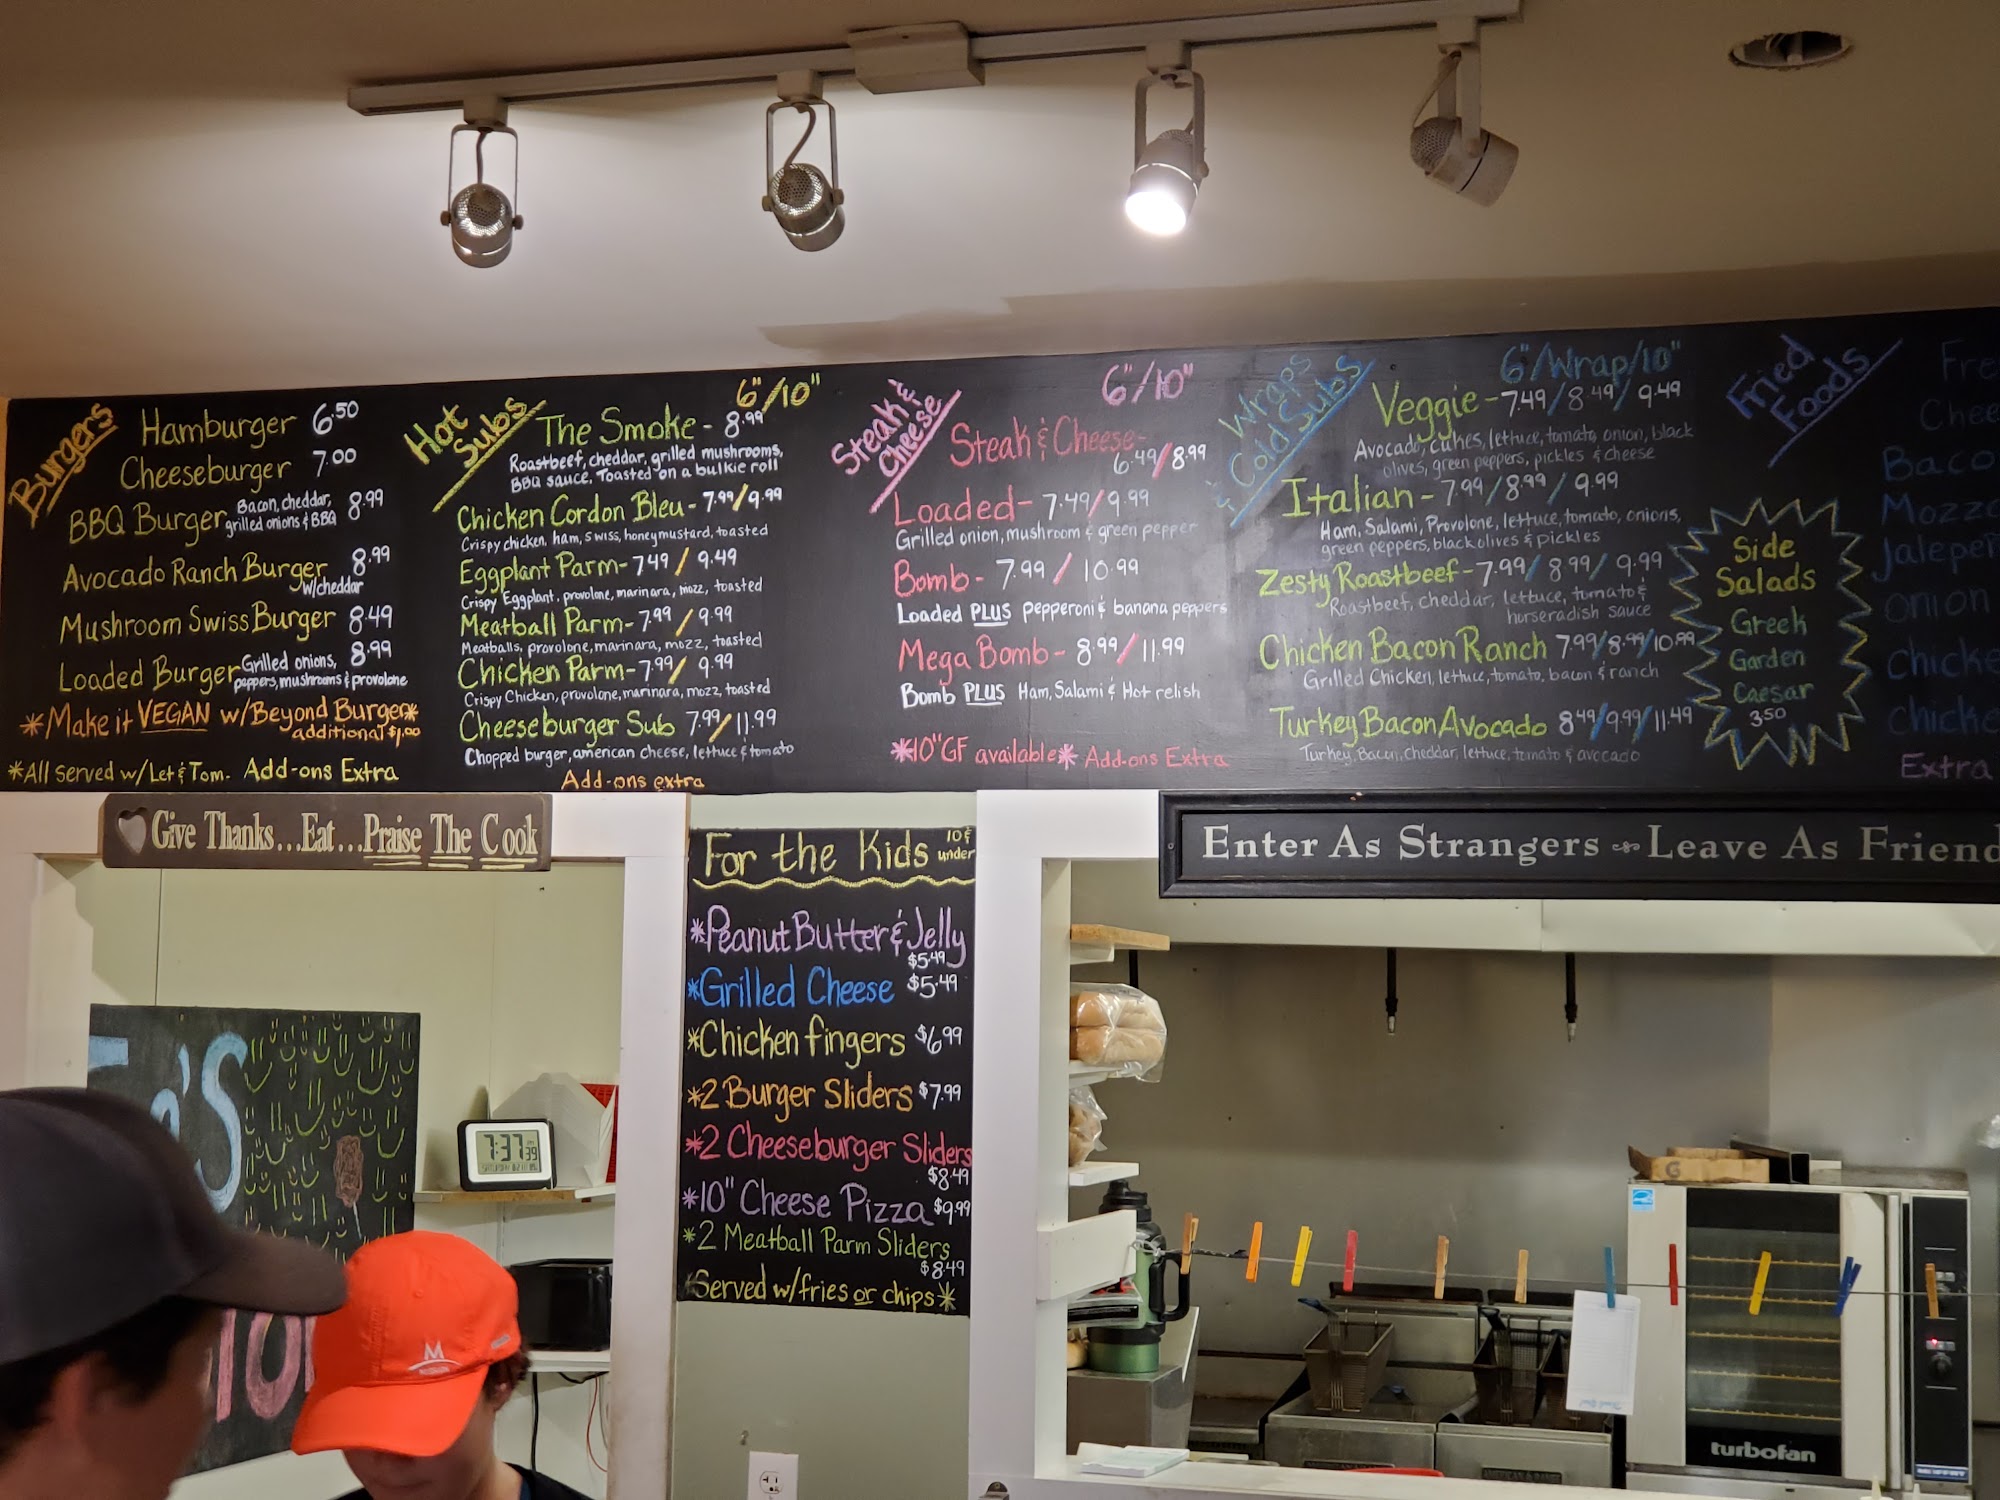 Burgers
Hamburger 6.50
Cheeseburger 7.00
BBQ Burger Bacon, cheddar, grilled onions & BBQ 8.99
Avocado Ranch Burger 8.99
w/cheddar
Mushroom Swiss Burger 8.49
Loaded Burger Grilled onions, peppers, mushrooms & provolone 8.99
*Make it VEGAN w/Beyond Burger*
additional $1.00
*All served w/Let & Tom. Add-ons Extra
Hot Subs
6"/10"
The Smoke - 8.99
Roastbeef, cheddar, grilled mushrooms,
BBQ sauce. Toasted on a bulkie roll
Chicken Cordon Bleu - 7.99/9.99
Crispy chicken, ham, swiss, honey mustard, toasted
Eggplant Parm - 7.49/9.49
Crispy Eggplant, provolone, marinara, mozz, toasted
Meatball Parm - 7.99/9.99
Meatballs, provolone, marinara, mozz, toasted
Chicken Parm - 7.99/9.99
Crispy Chicken, provolone, marinara, mozz, toasted
Cheeseburger Sub 7.99/11.99
Chopped burger, american cheese, lettuce & tomato
Add-ons extra
Steak & Cheese
6"/10"
Steak & Cheese -
6.49/8.99
Loaded - 7.49/9.99
Grilled onion, mushroom & green pepper
Bomb - 7.99/10.99
Loaded PLUS pepperoni & banana peppers
Mega Bomb - 8.99/11.99
Bomb PLUS Ham, Salami & Hot relish
*10" GF available* Add-ons Extra
Wraps & Cold Subs
6"/Wrap/10"
Veggie - 7.49/8.49/9.49
Avocado, cukes, lettuce, tomato, onion, black
olives, green peppers, pickles & cheese
Italian - 7.99/8.99/9.99
Ham, Salami, Provolone, lettuce, tomato, onions,
green peppers, black olives & pickles
Zesty Roastbeef - 7.99/8.99/9.99
Roastbeef, cheddar, lettuce, tomato &
horseradish sauce
Chicken Bacon Ranch 7.99/8.99/10.99
Grilled Chicken, lettuce, tomato, bacon & ranch
Turkey Bacon Avocado 8.49/9.99/11.49
Turkey, Bacon, cheddar, lettuce, tomato & avocado
Side
Salads
Greek
Garden
Caesar
3.50
Fried Foods
Fre
Chee
Baco
Mozza
Jalepe
Onion
Chicke
Chicke
Extra
Give Thanks...Eat...Praise The Cook
Enter As Strangers Leave As Friend
For the Kids 10 & under
*Peanut Butter & Jelly
$5.49
*Grilled Cheese $5.49
*Chicken fingers $6.99
*2 Burger Sliders $7.99
*2 Cheeseburger Sliders
$8.49
*10" Cheese Pizza $9.99
*2 Meatball Parm Sliders
$8.49
Served w/fries or chips*
'S
7:37 39
M
turbofan